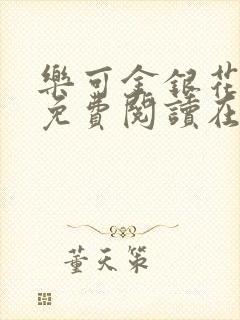 樂可金銀花
免費閱讀在
董天策